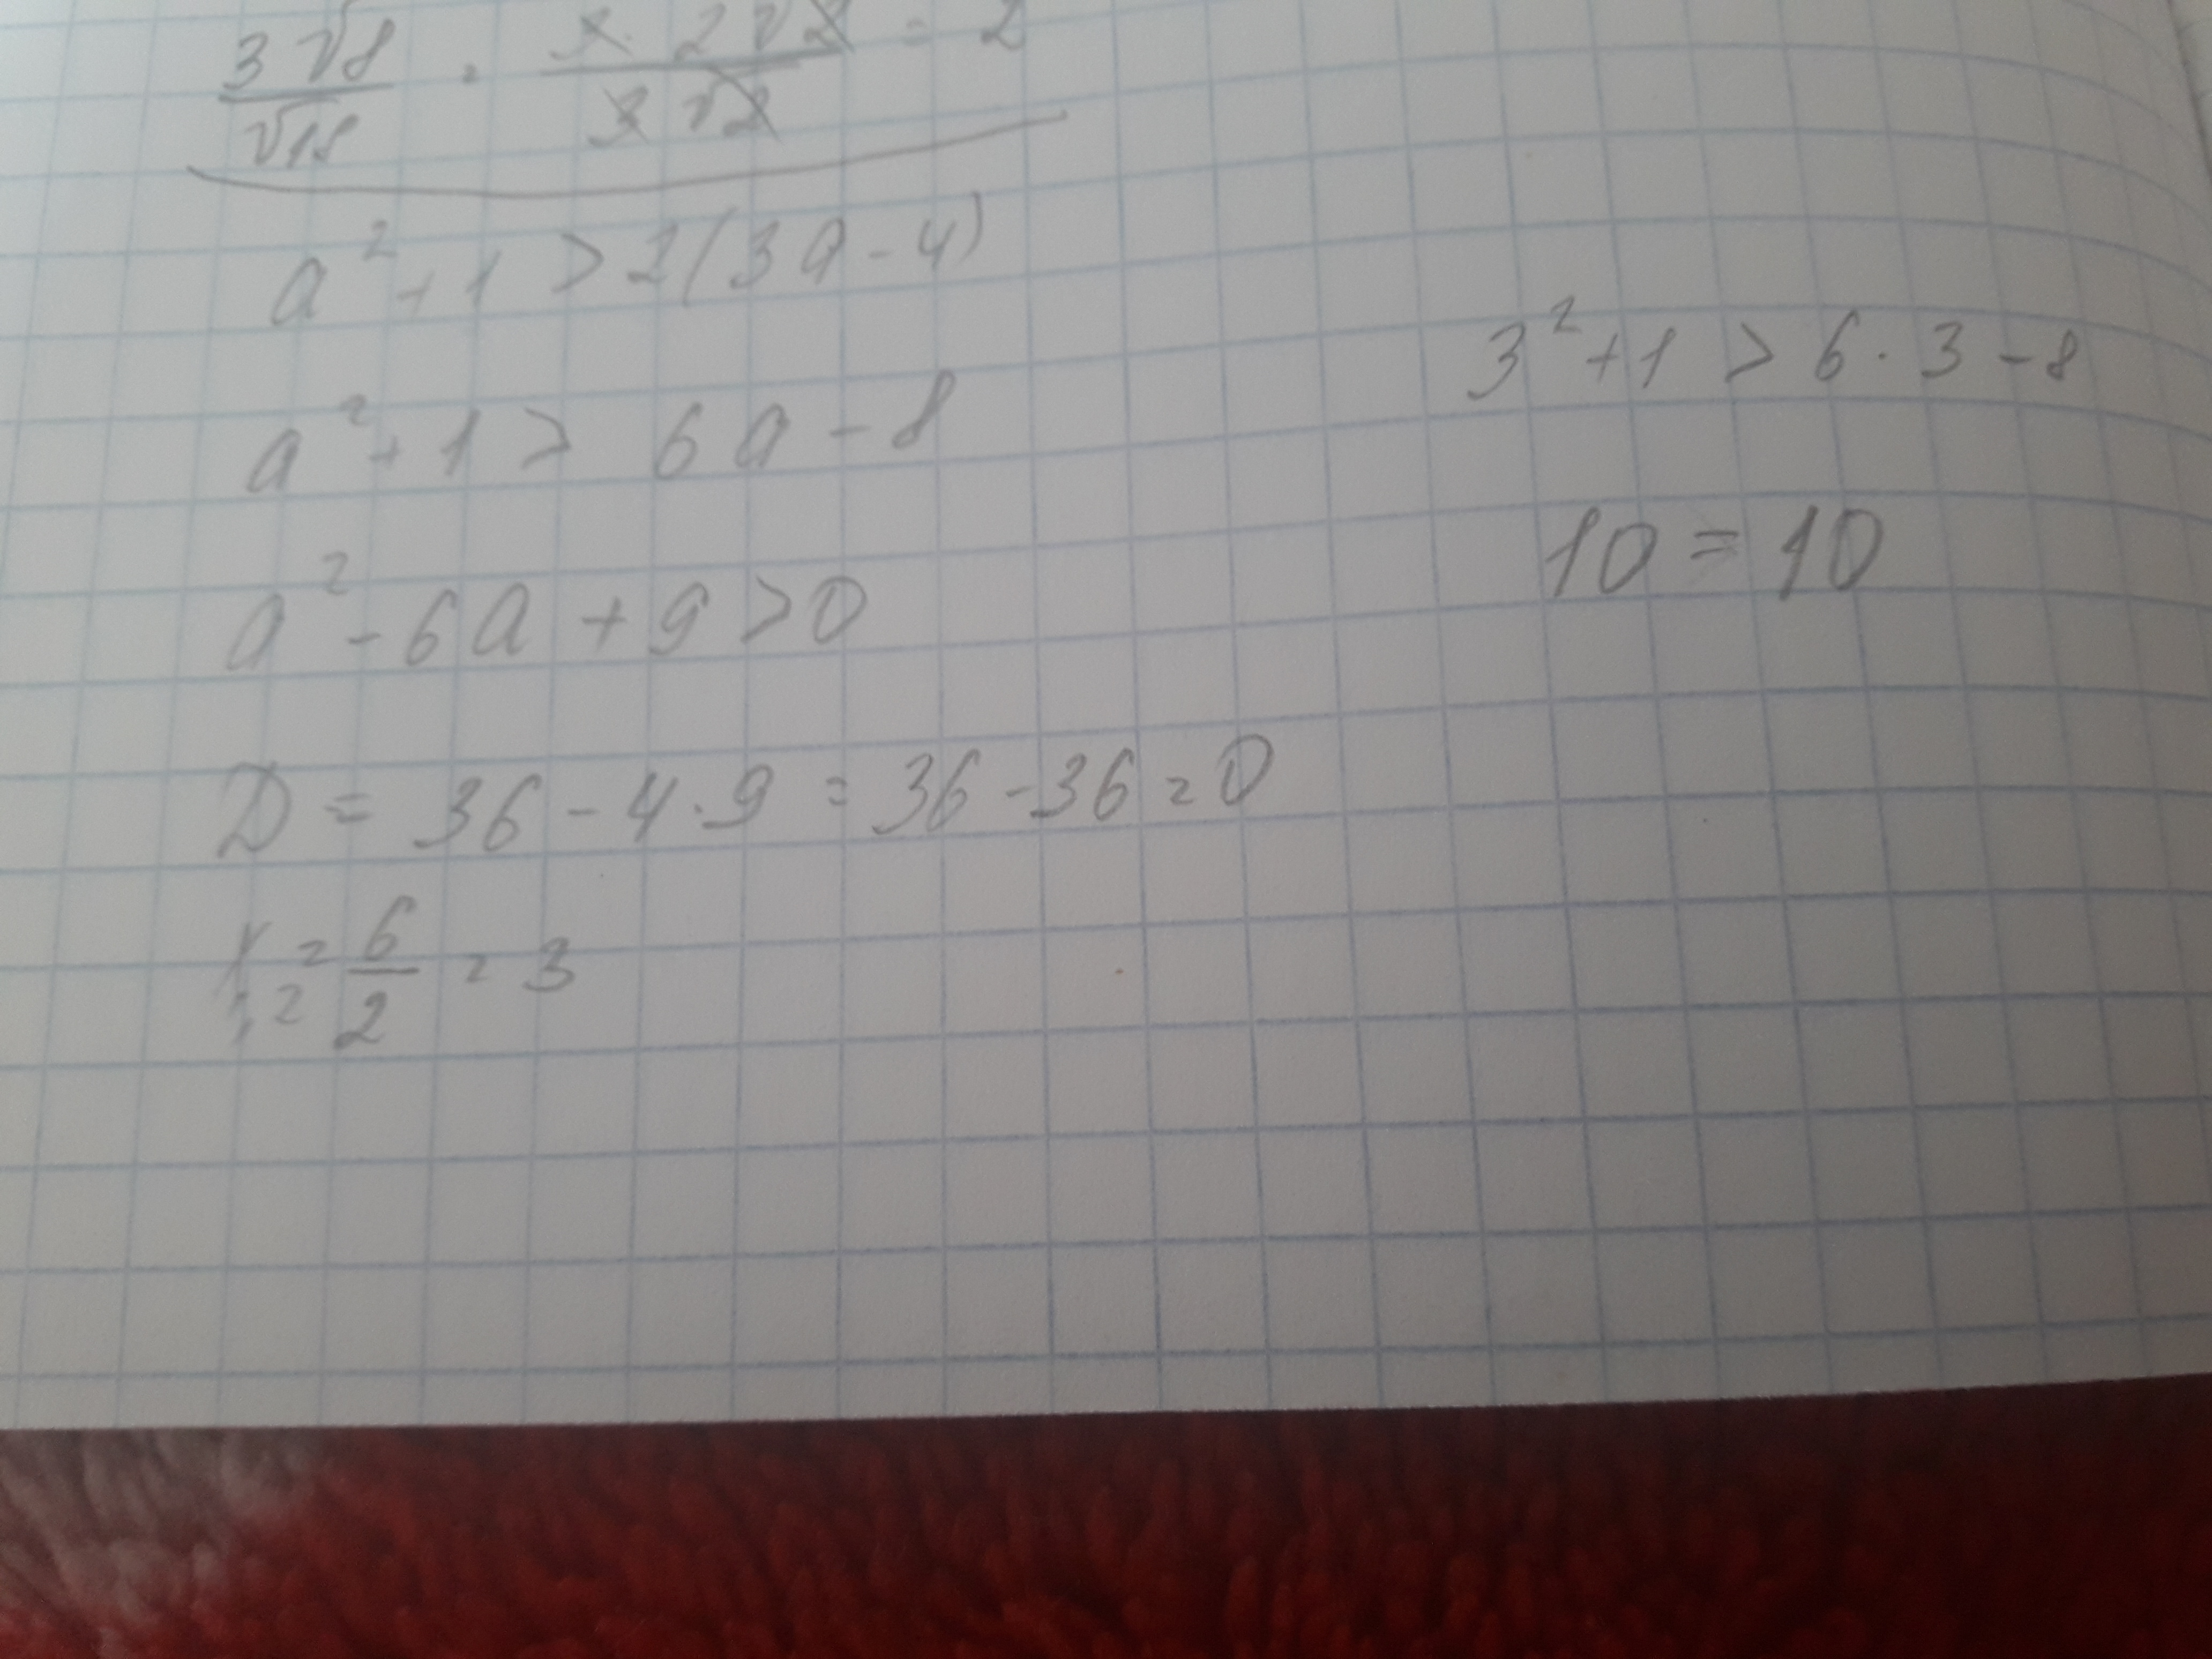 3√8/√18 = 3·2√2/3√2 = 2
a²+1 > 2(3a-4)
a²+1 > 6a-8
a²-6a+9>0
D = 36-4·9 = 36-36=0
x₁,₂ = 6/2 = 3
3²+1 > 6·3-8
10=10